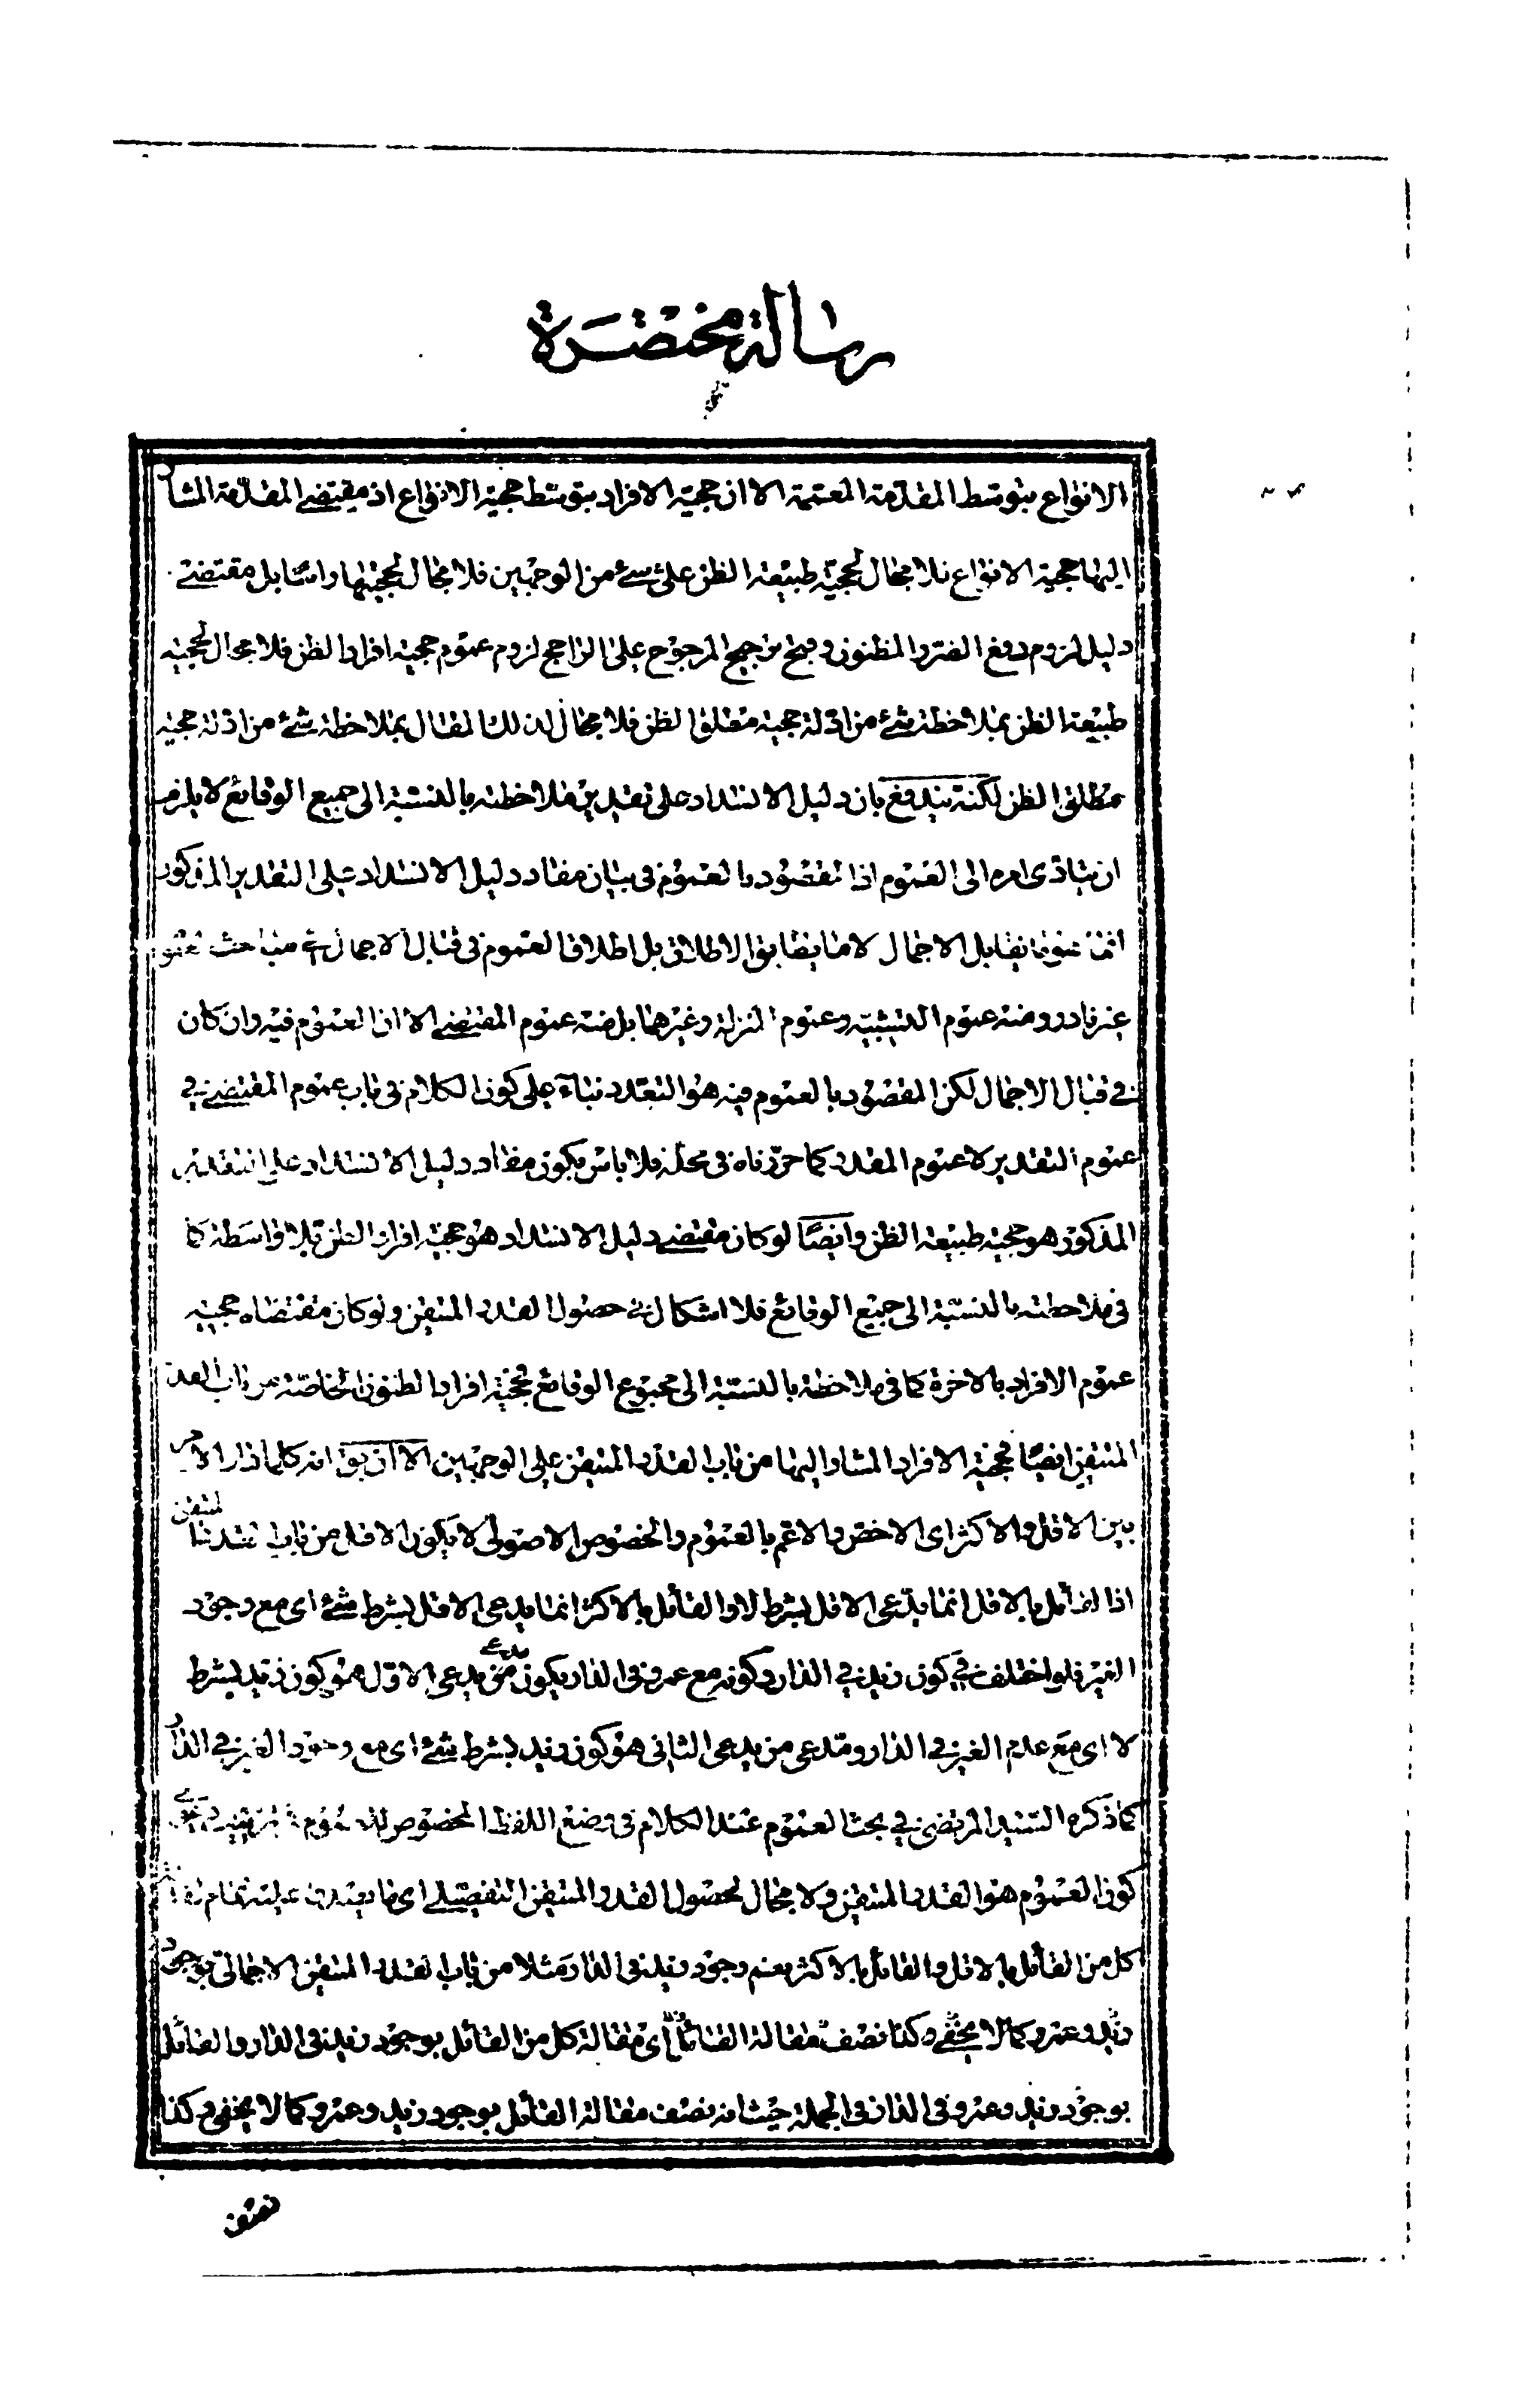 رسالة مختصرة
الانواع بتوسط المقدّمة المعتمة الا ان حجية الافراد بتوسط حجية الانواع اذ مقتضى المقدّمة المشار
اليها حجية الانواع فلا مجال لحجية طبيعة الظن على شئ من الوجهين فلا مجال لحجيتها راسًا بل مقتضى
دليل لزوم دفع الضرر المظنون وقبح ترجيح المرجوح على الراجح لزوم عموم حجية افراد الظن فلا مجال لحجية
طبيعة الظن بملاحظة شئ من ادلة حجية مطلق الظن فلا مجال لذلك المقال بملاحظة شئ من ادلة حجية
مطلق الظن لكنه يندفع بان دليل الانسداد على تقدير ملاحظته بالنسبة الى جميع الوقائع لا يلزم
ان يتادى امره الى العموم اذا المقصود بالعموم فى بيان مفاد دليل الانسداد على التقدير المذكور
انما هو ما يقابل الاجمال لا ما يطابق الاطلاق بل اطلاق العموم فى قبال الاجمال فى مباحث
غير نادر ومنه عموم التشبيه وعموم المنزلة وغيرهما بل منه عموم المقتضى الا ان العموم فيه وان كان
فى قبال الاجمال لكن المقصود بالعموم فيه هو التعدد بناء على كون الكلام فى باب عموم المقتضى فى
عموم التقدير لا عموم المقدر كما حررناه فى محله فلا باس بكون مفاد دليل الانسداد على التقدير
المذكور هو حجية طبيعة الظن وايضًا لو كان مقتضى دليل الانسداد هو حجية افراد الظن بلا واسطة كما
فى ملاحظته بالنسبة الى جميع الوقائع فلا اشكال فى حصول القدر المتيقن ولو كان مقتضاه حجية
عموم الافراد بالاخرة كما فى ملاحظته بالنسبة الى مجموع الوقائع فحجية افراد الظنون الخاصّة من باب القدر
المتيقن ايضًا فحجية الافراد المشار اليها من باب القدر المتيقن على الوجهين الا ان يقال انه كلما دار الامر
بين الاقل والاكثر اى الاخص والاعم بالعموم والخصوص الاصولى لا يكون الاقل من باب القدر المتيقن
اذا القائل بالاقل انما يدعى الاقل بشرط لا والقائل بالاكثر انما يدعى الاقل بشرط شئ اى مع وجود
الغير فلو اختلف فى كون زيد فى الدار وكونه مع عمرو فى الدار يكون مدعى من يدعى الاول هو كون زيد بشرط
لا اى مع عدم الغير فى الدار ومدعى من يدعى الثانى هو كون زيد بشرط شئ اى مع وجود الغير فى الدار
كما ذكره السيد المرتضى فى بحث العموم عند الكلام فى وضع اللفظ المخصوص للعموم
كون العموم هو القدر المتيقن ولا مجال لحصول القدر المتيقن التفصيلى اى ما يصدق عليه تمام مقالة
كل من القائل بالاقل والقائل بالاكثر نعم وجود زيد فى الدار مثلا من باب القدر المتيقن الاجمالى بوجود
زيد وعمرو كما لا يخفى وكذا نصف مقالة القائل اى مقالة كل من القائل بوجود زيد فى الدار والقائل
بوجود زيد وعمرو فى الدار فى الجملة حيث انه نصف مقالة القائل بوجود زيد وعمرو كما لا يخفى وكذا
نصف